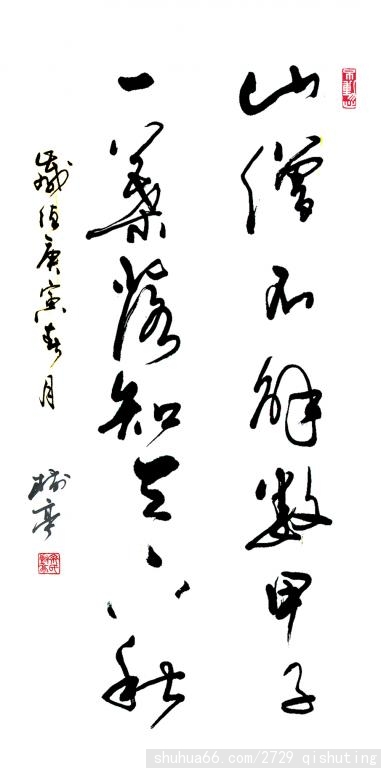 山僧不解數甲子
一葉落知天下秋
歲值庚寅春月
樹亭
shuhua66.com/2729 qishuting